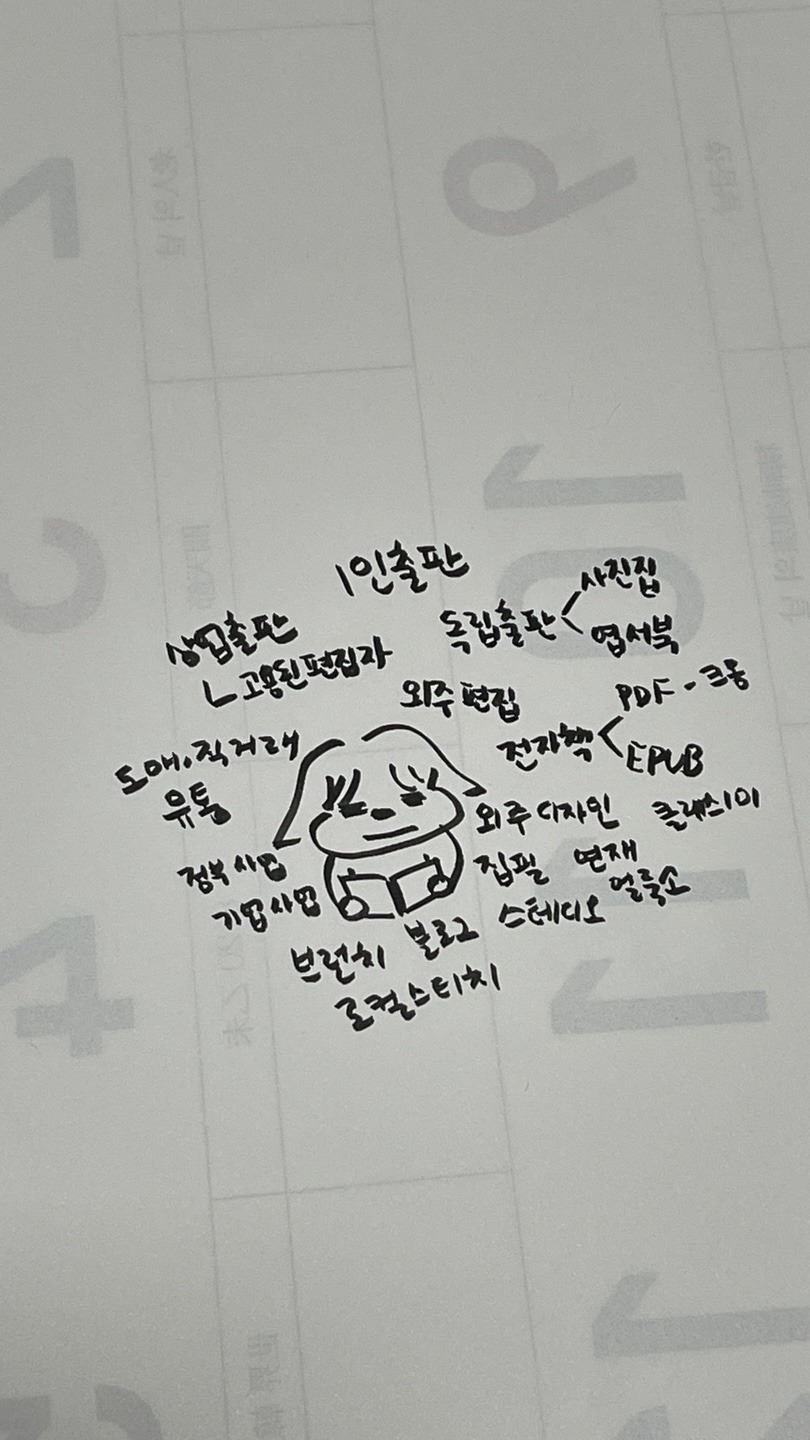 1인출판
상업출판
ㄴ고용된편집자
독립출판
사진집
엽서북
외주편집
전자책
PDF - 크몽
EPUB
도매.직거래
유통
외주디자인
클래스101
정부사업
기업사업
집필
연재
얼룩소
스테디오
브런치
블로그
로컬스티치